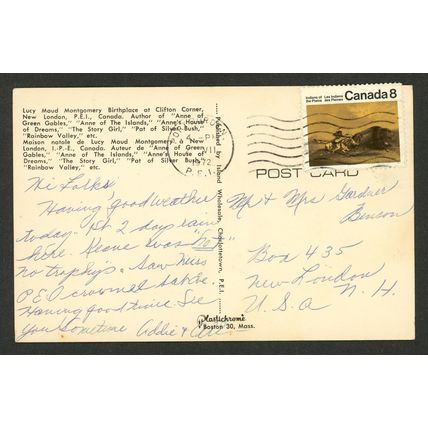 Lucy Maud Montgomery Birthplace at Clifton Corner,
New London, P.E.I., Canada. Author of "Anne of
Green Gables," "Anne of The Islands," "Anne's House
of Dreams," "The Story Girl," "Pat of Silver Bush,"
"Rainbow Valley," etc.
Maison natale de Lucy Maud Montgomery, à New
London, I.-P.-E., Canada. Auteur de "Anne of Green
Gables," "Anne of The Islands," "Anne's House of
Dreams," "The Story Girl," "Pat of Silver Bush,"
"Rainbow Valley," etc.
Hi Folks
Having good weather
today. 1st 2 days rain
here. Keane was "
no trophys. Saw Miss
P E O crowned
Having good time. See
you Sometime Addie &
Published by Island Wholesale, Charlottetown, P.E.I.
Plastichrome
Boston 30, Mass.
PM
1972
P.E.I.
Indians of the Plains
Les Indiens des Plaines
Canada 8
POST CARD
Mr & Mrs Gardner
Benson
Box 435
New London
N. H.
U.S.A